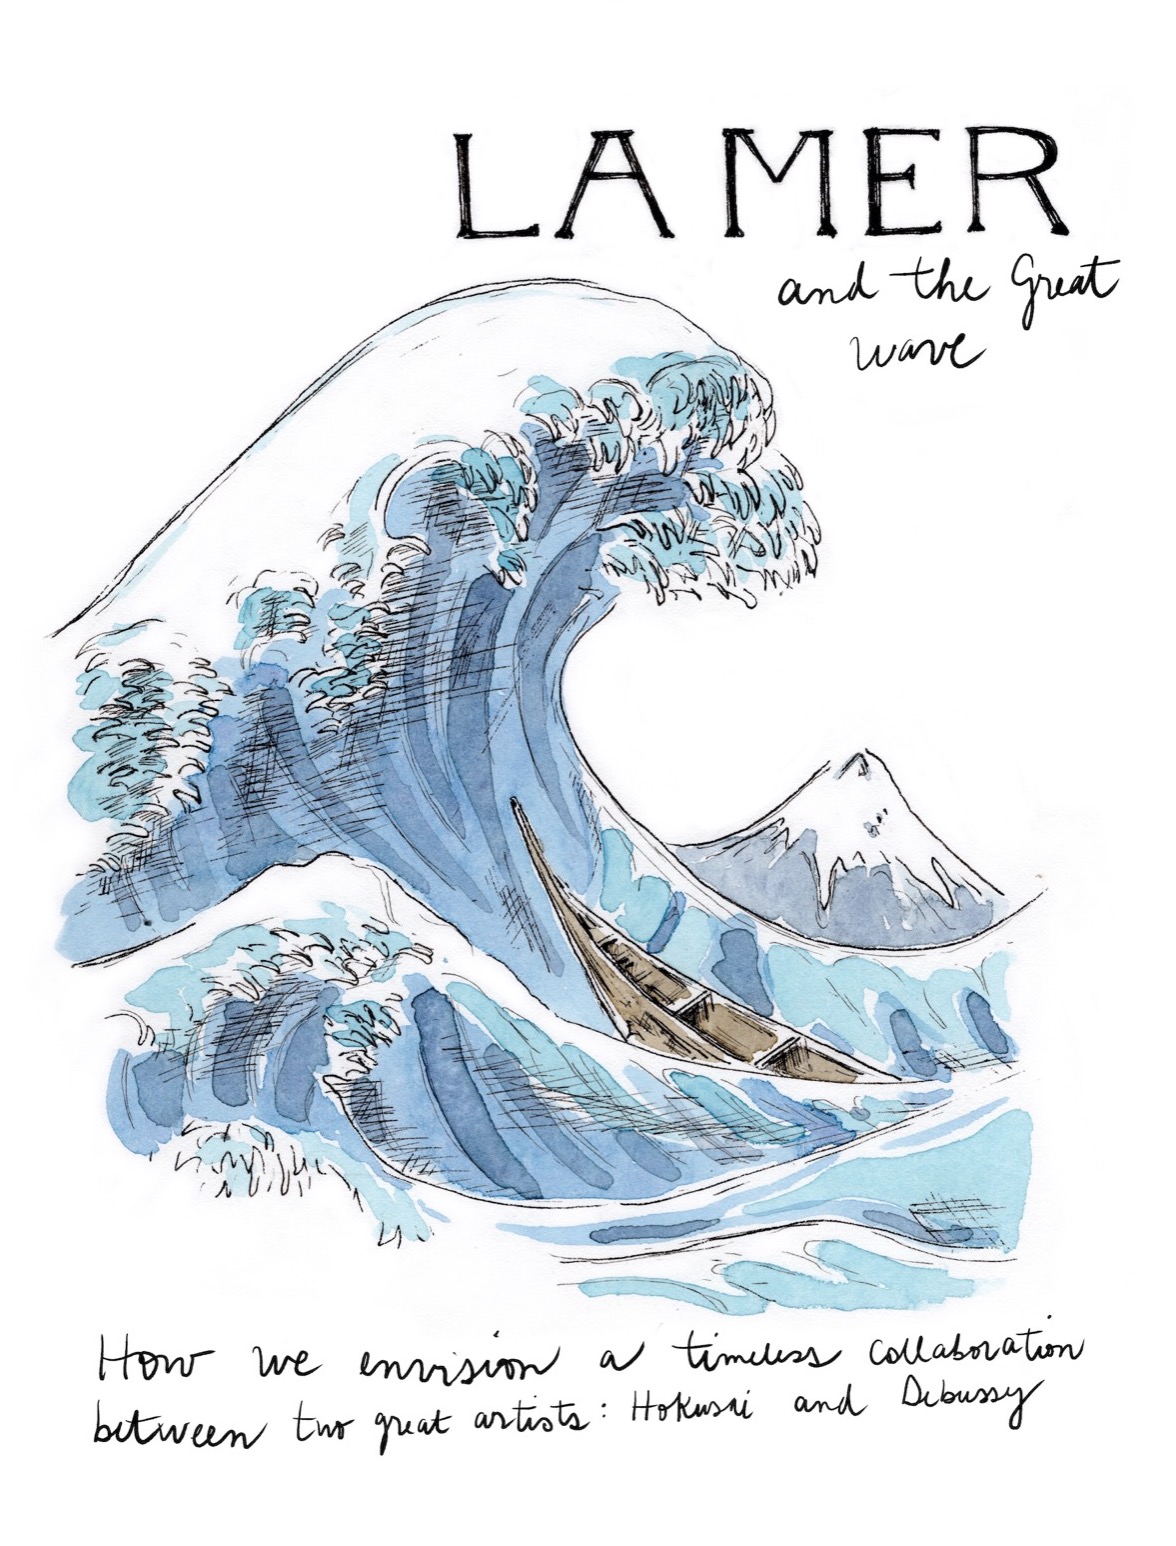 LA MER
and the Great
wave
How we envision a timeless collaboration
between two great artists: Hokusai and Debussy